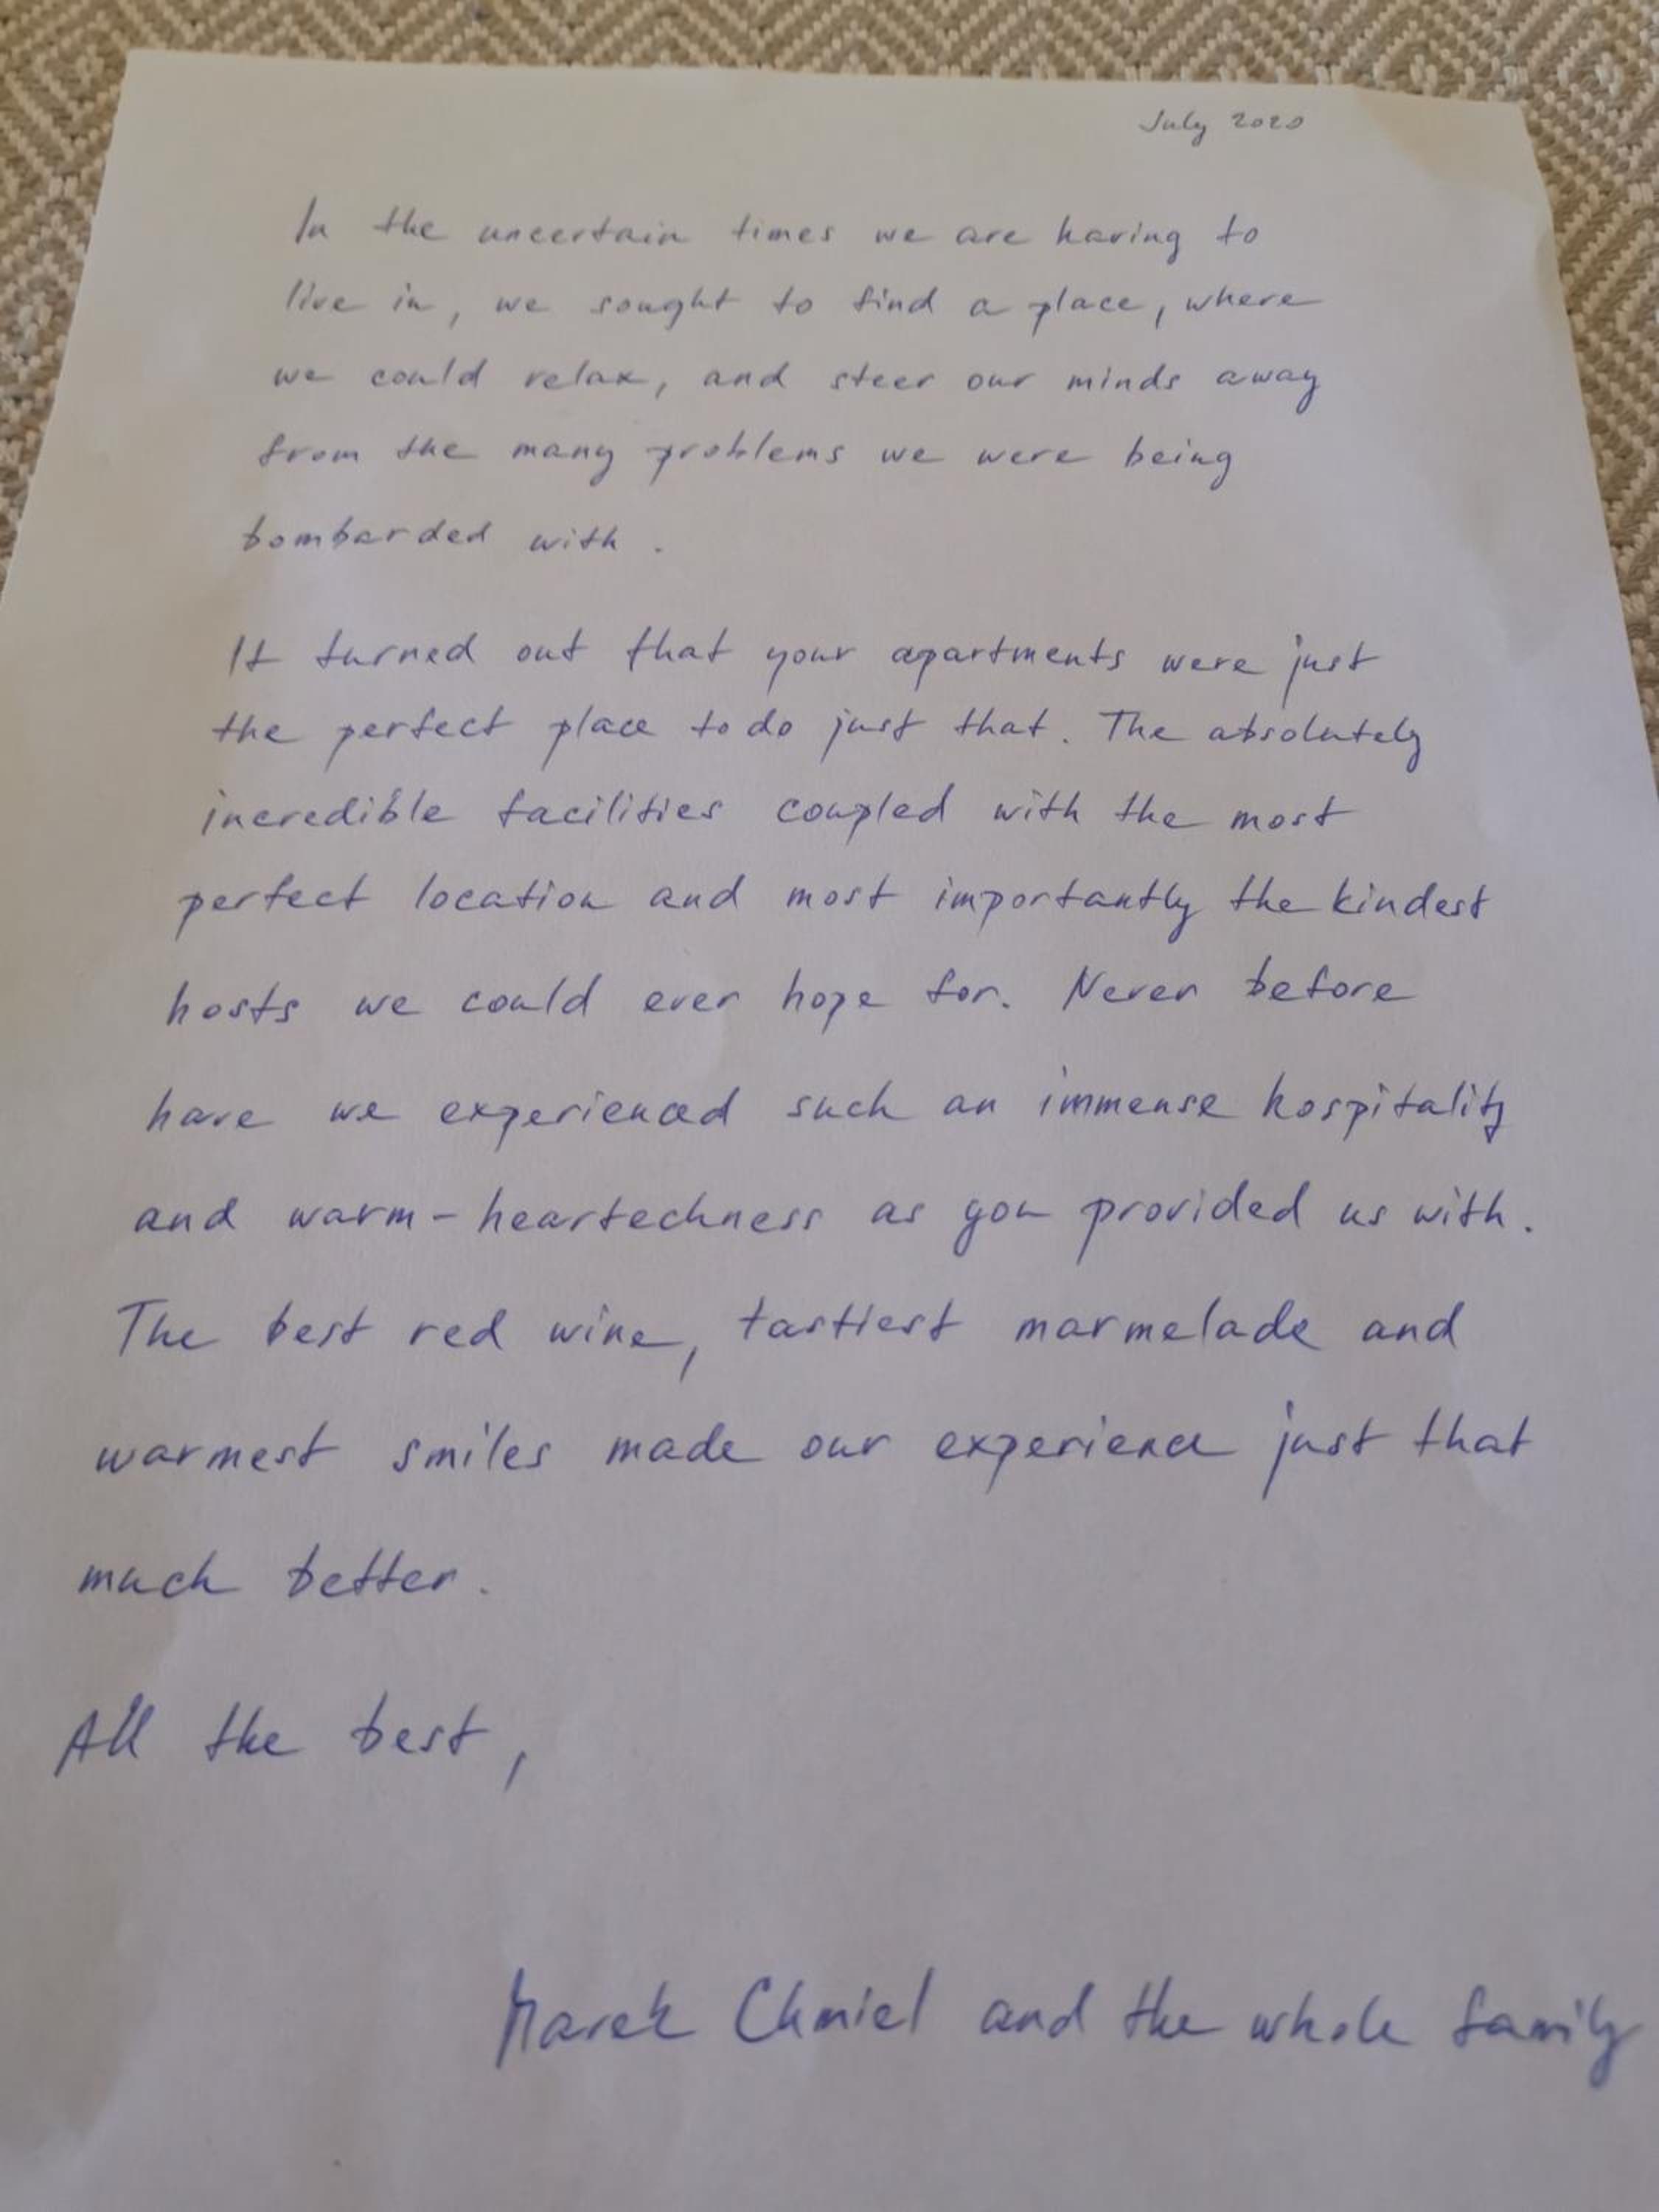 July 2020
In the uncertain times we are having to
live in, we sought to find a place, where
we could relax, and steer our minds away
from the many problems we were being
bombarded with.
It turned out that your apartments were just
the perfect place to do just that. The absolutely
incredible facilities coupled with the most
perfect location and most importantly the kindest
hosts we could ever hope for. Never before
have we experienced such an immense hospitality
and warm-heartechness as you provided us with.
The best red wine, tastiest marmelade and
warmest smiles made our experience just that
much better.
All the best,
Marek Chmiel and the whole family